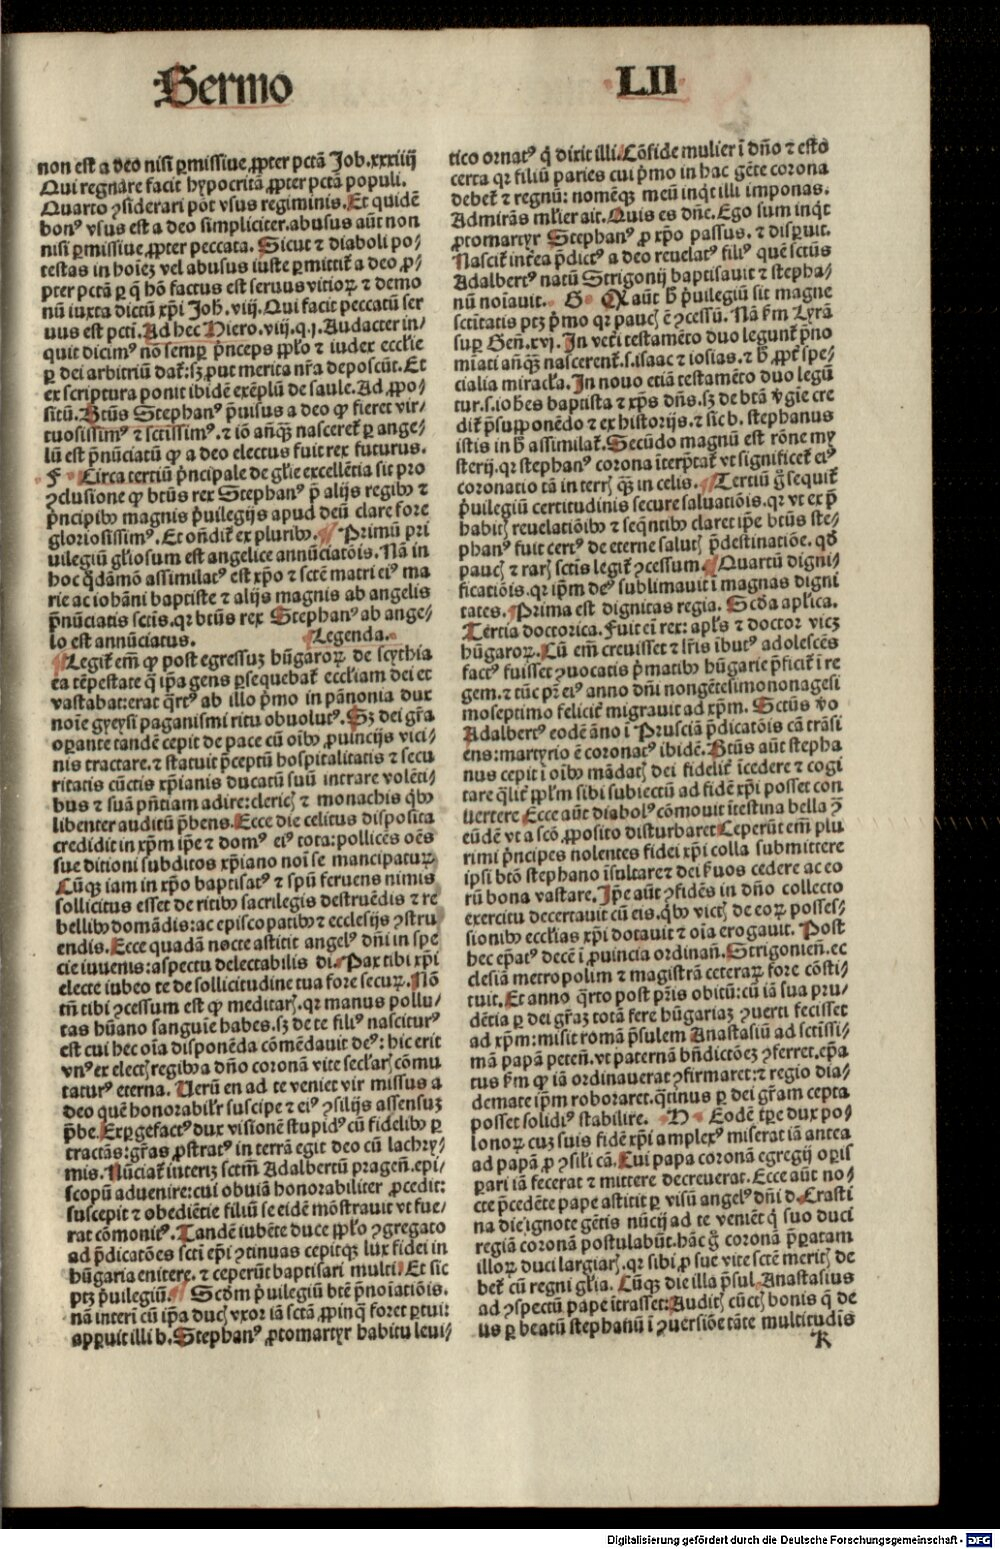 Sermo
LII
non est a deo nisi ꝑmissiue ꝓpter pctā Job.xxxiiij
Qui regnare facit hypocritā ꝓpter pctā populi.
Quarto ꝯsiderari pōt vsus regiminis. Et quidē
bonꝰ vsus est a deo simpliciter. abusus aūt non
nisi ꝑmissiue ꝓpter peccata. Sicut ⁊ diaboli po/
testas in hoīeꝫ vel abusus iuste ꝑmittit̄ a deo ꝓ/
pter pctā ꝑ q̄ hō factus est seruus vitioꝝ ⁊ demo
nū iuxta dictū xp̄i Joh.viij. Qui facit peccatū ser
uus est pcti. Ad hec Hiero.viij.q.j. Audacter in/
quit dicimꝰ nō semꝑ p̄nceps ꝓplo ⁊ iudex ecclie
ꝑ dei arbitriū dat̄: sꝫ ꝓut merita nr̄a deposcūt. Et
ex scriptura ponit ibidē exēplū de saule. Ad ꝓpo/
sitū. Btūs Stephanꝰ p̄uisus a deo ꝙ fieret vir/
tuosissimꝰ ⁊ sctissimꝰ. ⁊ iō añqꝫ nasceret̄ ꝑ ange/
lū est p̄nūciatū ꝙ a deo electus fuit rex futurus.
F Circa tertiū p̄ncipale de glie excellētia sit pro
ꝯclusione ꝙ btūs rex Stephanꝰ p̄ alijs regibꝰ ⁊
p̄ncipibꝰ magnis p̄uilegijs apud deū clare fore
gloriosissimꝰ. Et oñdit̄ ex pluribꝰ. Primū pri
uilegiū gl̄iosum est angelice annūciatōis. Nā in
hoc q̄dāmō assimilatꝰ est xp̄o ⁊ sctē matri eiꝰ ma
rie ac iohāni baptiste ⁊ alijs magnis ab angelis
p̄nūciatis sctis. qꝛ btūs rex Stephanꝰ ab ange/
lo est annūciatus. Legenda.
Legit̄ em̄ ꝙ post egressuꝫ hūgaroꝝ de scythia
ea tēpestate q̄ ip̄a gens ꝑsequebat̄ eccliam dei et
vastabat: erat q̄rtꝰ ab illo p̄mo in pānonia dux
noīe geysi paganismi ritu obuolutꝰ. Sꝫ dei gr̄a
oꝑante tandē cepit de pace cū oībꝰ ꝓuincijs vici/
nis tractare. ⁊ statuit p̄ceptū hospitalitatis ⁊ secu
ritatis cūctis xp̄ianis ducatū suū intrare volēti/
bus ⁊ suā pn̄tiam adire: clericꝭ ⁊ monachis qͥbꝰ
libenter auditū p̄bens. Ecce die celitus disposita
credidit in xp̄m ip̄e ⁊ domꝰ eiꝰ tota: pollicēs oēs
sue ditioni subditos xp̄iano noī se mancipaturꝰ
Cūqꝫ iam in xp̄o baptisatꝰ ⁊ spū feruens nimis
sollicitus esset de ritibꝰ sacrilegis destruēdis ⁊ re
bellibꝰ domādis: ac episcopatibꝰ ⁊ ecclesijs ꝯstru
endis. Ecce quadā nocte astitit angelꝰ dn̄i in spe
cie iuuenis: aspectu delectabilis di. Pax tibi xp̄i
electe iubeo te de sollicitudine tua fore securꝰ. Nō
tn̄ tibi ꝯcessum est ꝙ meditarꝭ. qꝛ manus pollu/
tas hūano sanguīe habes. sꝫ de te filiꝰ nasciturꝰ
est cui hec oīa disponēda cōmēdauit deꝰ: hic erit
vnꝰ ex electꝭ regibꝰ a dn̄o coronā vite secl̄arꝭ cōmu
taturꝰ eterna. Uerū en ad te veniet vir missus a
deo quē honorabilr̄ suscipe ⁊ eiꝰ ꝯsilijs assensuꝫ
p̄be. Expgefactꝰ dux visionē stupidꝰ cū fidelibꝰ ꝑ
tractās: gr̄as ꝓstratꝰ in terrā egit deo cū lachry/
mis. Nūciat̄ interiꝫ sctm̄ Adalbertū pragen̄. epi/
scopū aduenire: cui obuiā honorabiliter ꝓcedit:
suscepit ⁊ obediētie filiū se eidē mōstrauit vt fue/
rat cōmonitꝰ. Tandē iubēte duce ꝓplo ꝯgregato
ad p̄dicatōes scti ep̄i ꝯtinuas cepitqꝫ lux fidei in
hūgaria enitere. ⁊ ceperūt baptisari multi. Et sic
ptꝫ p̄uilegiū. Scdm p̄uilegiū btē p̄noīatiōis.
nā interī cū ip̄a ducꝭ vxor iā sctā ꝓpinqͣ foret ꝑtui:
apꝑuit illi b. Stephanꝰ ꝓtomartyr habitu leui/
tico ornatꝰ q̄ dixit illi. Cōfide mulier ī dn̄o ⁊ esto
certa qꝛ filiū paries cui p̄mo in hac gēte corona
debet̄ ⁊ regnū: nomēqꝫ meū inqͥt illi imponas.
Admirās ml̄ier ait. Quis es dn̄e. Ego sum inqͥt
ꝓtomartyr Stephanꝰ ꝓ xp̄o passus. ⁊ disꝑuit.
Nascit̄ int̄ea p̄dictꝰ a deo reuelatꝰ filiꝰ quē sctūs
Adalbertꝰ natū Strigonij baptisauit ⁊ stepha/
nū noīauit. G Q aūt h̄ p̄uilegiū sit magne
sctītatis ptꝫ p̄mo qꝛ paucꝭ ē ꝯcessū. Nā km̄ Lyrā
suꝑ Gen̄.xvj. In vet̄i testamēto duo legunt̄ p̄no
miati añqꝫ nascerent̄. s. isaac ⁊ iosias. ⁊ h̄ ꝓpt̄ spe/
cialia miracl̄a. In nouo etiā testamēto duo legū
tur. s. iohēs baptista ⁊ xp̄s dn̄s. sꝫ de btā v̄gīe cre
dit̄ p̄suꝓponēdo ⁊ ex historijs. ⁊ sic b. stephanus
istis in h̄ assimilat̄. Secūdo magnū est rōne my
sterij. qꝛ stephanꝰ corona īterp̄tat̄ vt significet̄ eiꝰ
coronatio tā in terrꝭ qꝫ in celis. Tertiū g̊ sequit̄
p̄uilegiū certitudinis secure saluatiōis. qꝛ vt ex p̄
habitꝭ reuelatiōibꝰ ⁊ seqn̄tibꝰ claret ip̄e btūs ste/
phanꝰ fuit certꝰ de eterne salutꝭ p̄destinatiōe. qd̄
paucꝭ ⁊ rarꝭ sctis legit̄ ꝯcessum. Quartū digni/
ficatiōis. qꝛ ip̄m deꝰ sublimauit ī magnas digni
tates. Prima est dignitas regia. Scd̄a apl̄ica.
Tertia doctorica. Fuit eī rex: apl̄s ⁊ doctor vicꝫ
hūgaroꝝ. Cū em̄ creuisset ⁊ lr̄is ībutꝰ adolescēs
factꝰ fuisset ꝯuocatis p̄matibꝰ hūgarie p̄ficit̄ ī re
gem. ⁊ tūc pr̄ eiꝰ anno dn̄i nongētesimononagesi
moseptimo felicit̄ migrauit ad xp̄m. Sctūs v̄o
Adalbertꝰ eodē āno ī Prusciā p̄dicatōis cā trāsi
ens: martyrio ē coronatꝰ ibidē. Btūs aūt stepha
nus cepit ī oībꝰ mādatꝭ dei fidelit̄ īcedere ⁊ cogi
tare qͣlit̄ ꝓplm̄ sibi subiectū ad fidē xp̄i posset con
uertere Ecce aūt diabolꝰ cōmouit ītestina bella ꝯ
eūdē vt a scō ꝓposito disturbaret Ceperūt em̄ plu
rimi p̄ncipes nolentes fidei xp̄i colla submittere
ipsi btō stephano īsultare ⁊ dei s̄uos cedere ac eo
rū bona vastare. Ip̄e aūt ꝯfidēs in dn̄o collecto
exercitu decertauit cū eis. qͥbꝰ victꝭ de eoꝝ posses/
sionibꝰ eccl̄ias xp̄i dotauit ⁊ oīa erogauit. Post
hec ep̄atꝰ decē ī ꝓuincia ordinan̄. Strigonien̄. ec
clesiā metropolim ⁊ magistrā ceteraꝝ fore cōsti/
tuit. Et anno q̄rto post pr̄is obitū: cū iā sua pru/
dētia ꝑ dei gr̄aꝫ totā fere hūgariaꝫ ꝯuerti fecisset
ad xp̄m: misit romā p̄sulem Anastasiū ad sctissi/
mā papā peten̄. vt paternā bn̄dictōeꝫ ꝯferret. ep̄a
tus km̄ ꝙ iā ordinauerat ꝯfirmaret: ⁊ regio dia/
demate ip̄m roboraret. qͣtinus ꝑ dei gr̄am cepta
posset solidiꝰ stabilire. H Eodē tꝑe dux po/
lonoꝝ cuꝫ suis fidē xp̄i amplexꝰ miserat iā antea
ad papā ꝓ ꝯsili cā. Cui papa coronā egregij oꝑis
ꝑari iā fecerat ⁊ mittere decreuerat. Ecce aūt no/
cte p̄cedēte pape astitit ꝑ visū angelꝰ dn̄i d. Crasti
na die ignote gētis nūcij ad te veniēt q̄ suo duci
regiā coronā postulabūt. hāc g̊ coronā p̄ꝑatam
illoꝝ duci largiarꝭ. qꝛ sibi ꝓ sue vite sctē meritꝭ de
bet̄ cū regni gl̄ia. Cūqꝫ die illa p̄sul Anastasius
ad ꝯspectū pape ītrasset: Auditꝭ cūctꝭ bonis q̄ de
us ꝑ beatū stephanū ī ꝯuersiōe tāte multitudīs
K
Digitalisierung gefördert durch die Deutsche Forschungsgemeinschaft - DFG